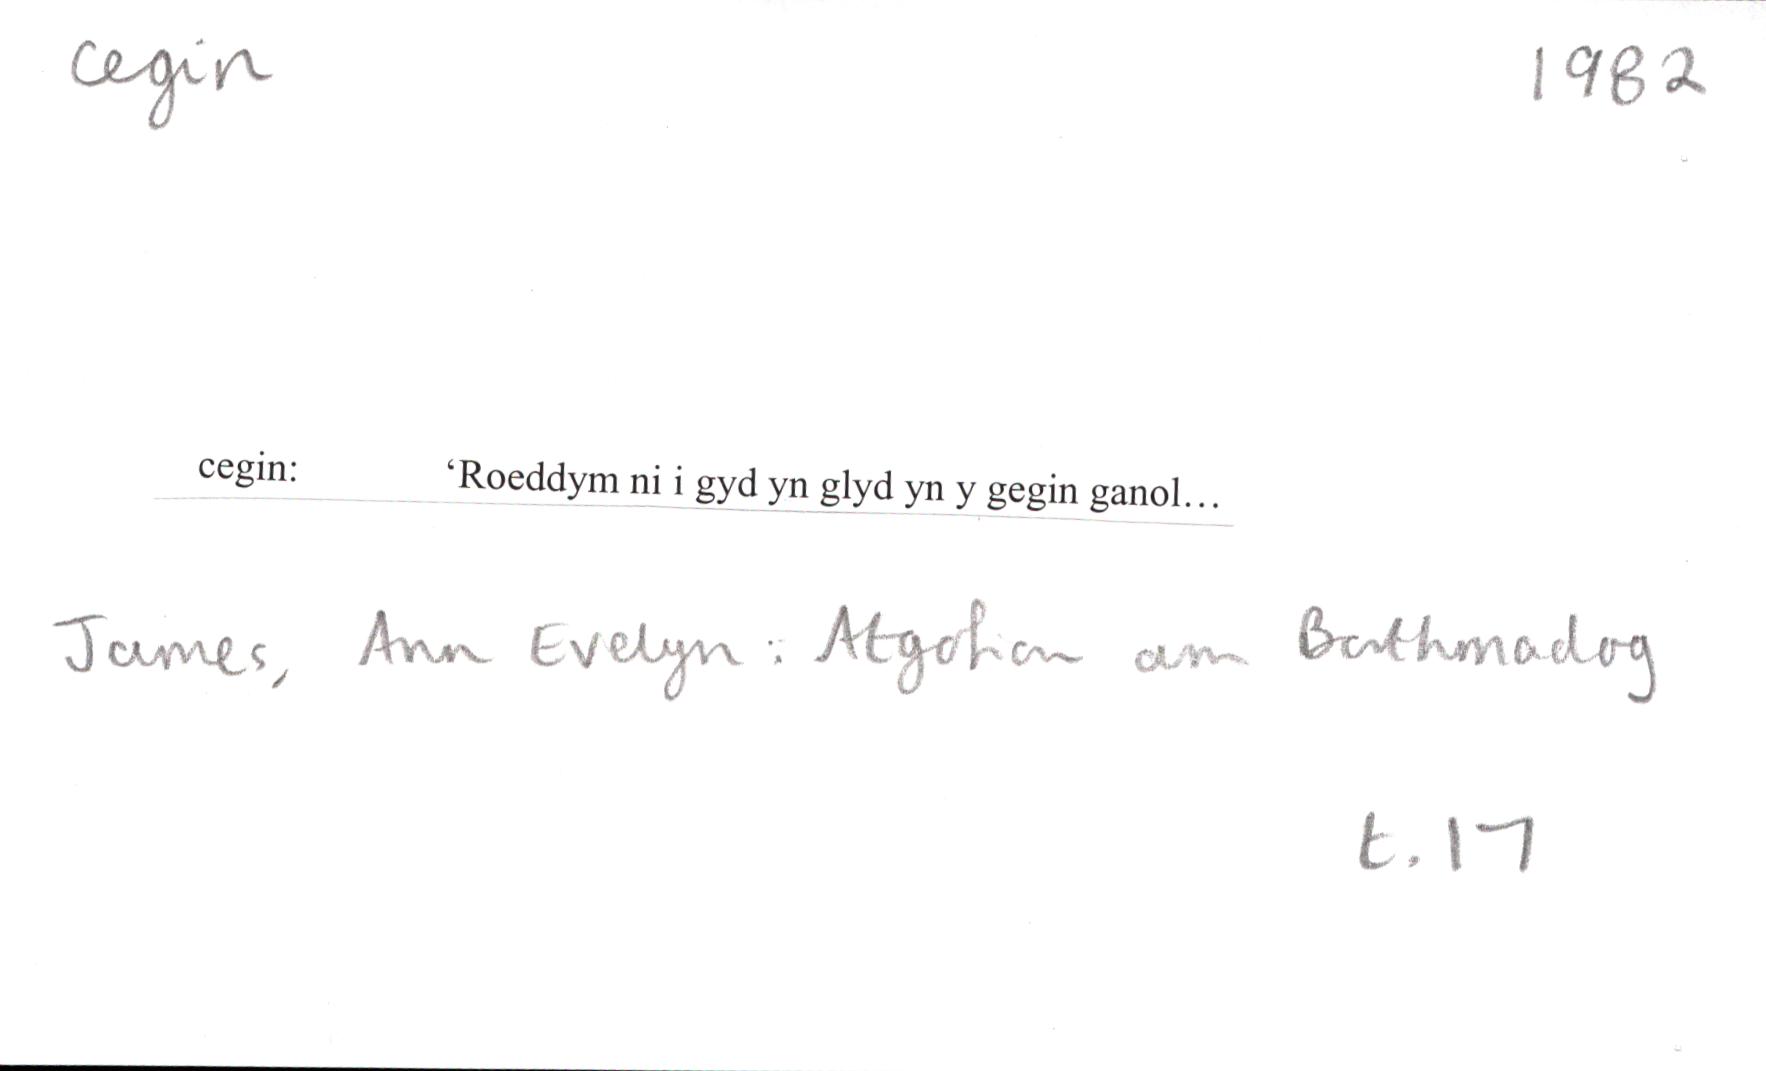 cegin 1982
cegin: ‘Roeddym ni i gyd yn glyd yn y gegin ganol...
James, Ann Evelyn: Atgofion am Borthmadog
t. 17